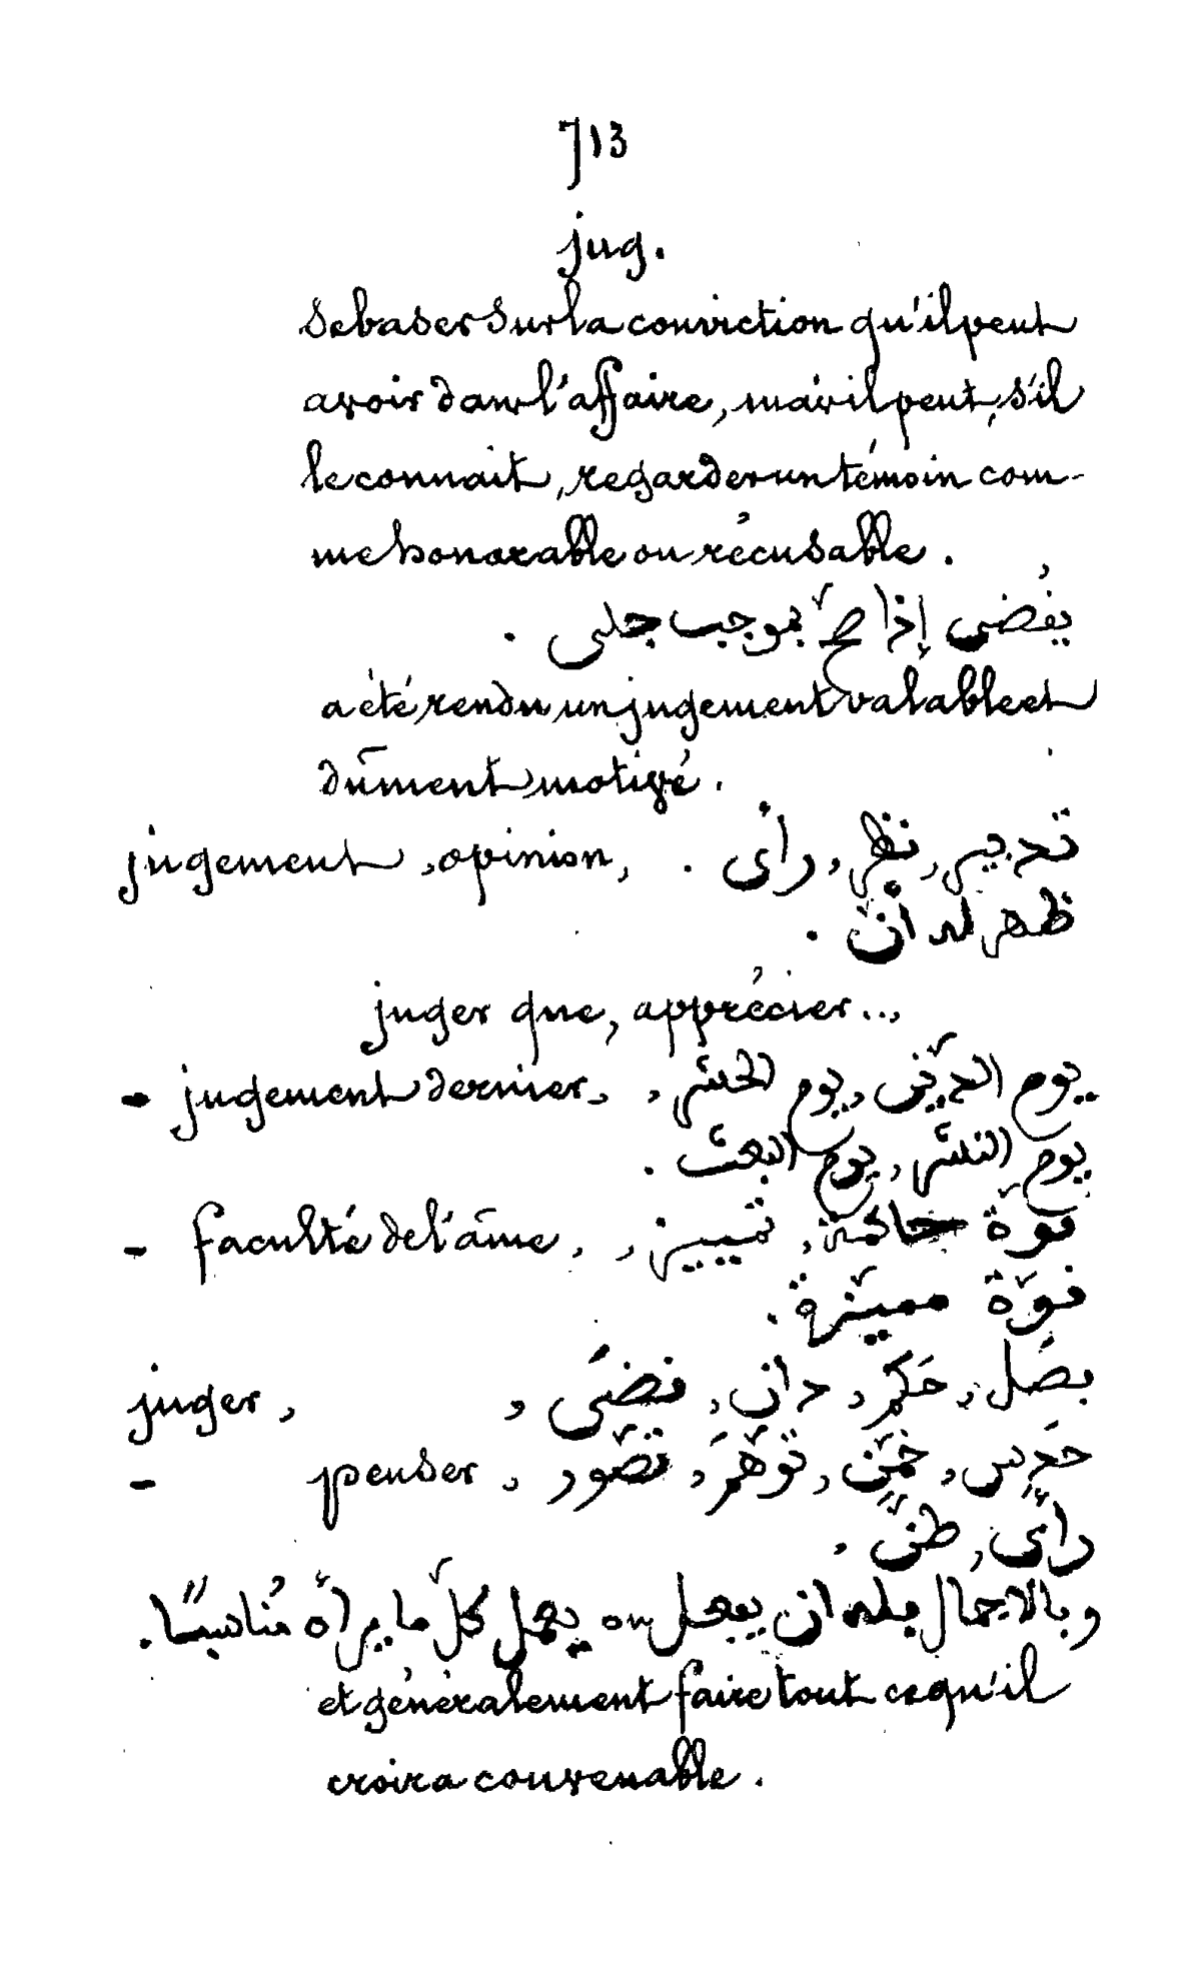 713
jug.
se baser sur la conviction qu'il peut
avoir dans l'affaire, mais il peut, s'il
le connait, regarder un témoin com-
me honorable ou récusable.
يقضى إذا صحّ بموجب جلى.
a été rendu un jugement valable et
dûment motivé.
jugement, opinion, تدبير, نظر, رأى.
ظهر له أن.
juger que, apprécier...
- jugement dernier, يوم الدّين, يوم الحشر,
يوم النشر, يوم البعث.
- faculté de l'âme, قوّة حاكمة, تمييز,
قوّة مميّزة.
juger, فصَل, حَكم, دان, قضَى,
- penser, حَدس, خمّن, توّهمَ, تصّور,
رأى, ظنّ.
وبالاجمال فله ان يفعل ou يعمل كلّ ما يرأه مُناسبًا.
et généralement faire tout ce qu'il
croira convenable.